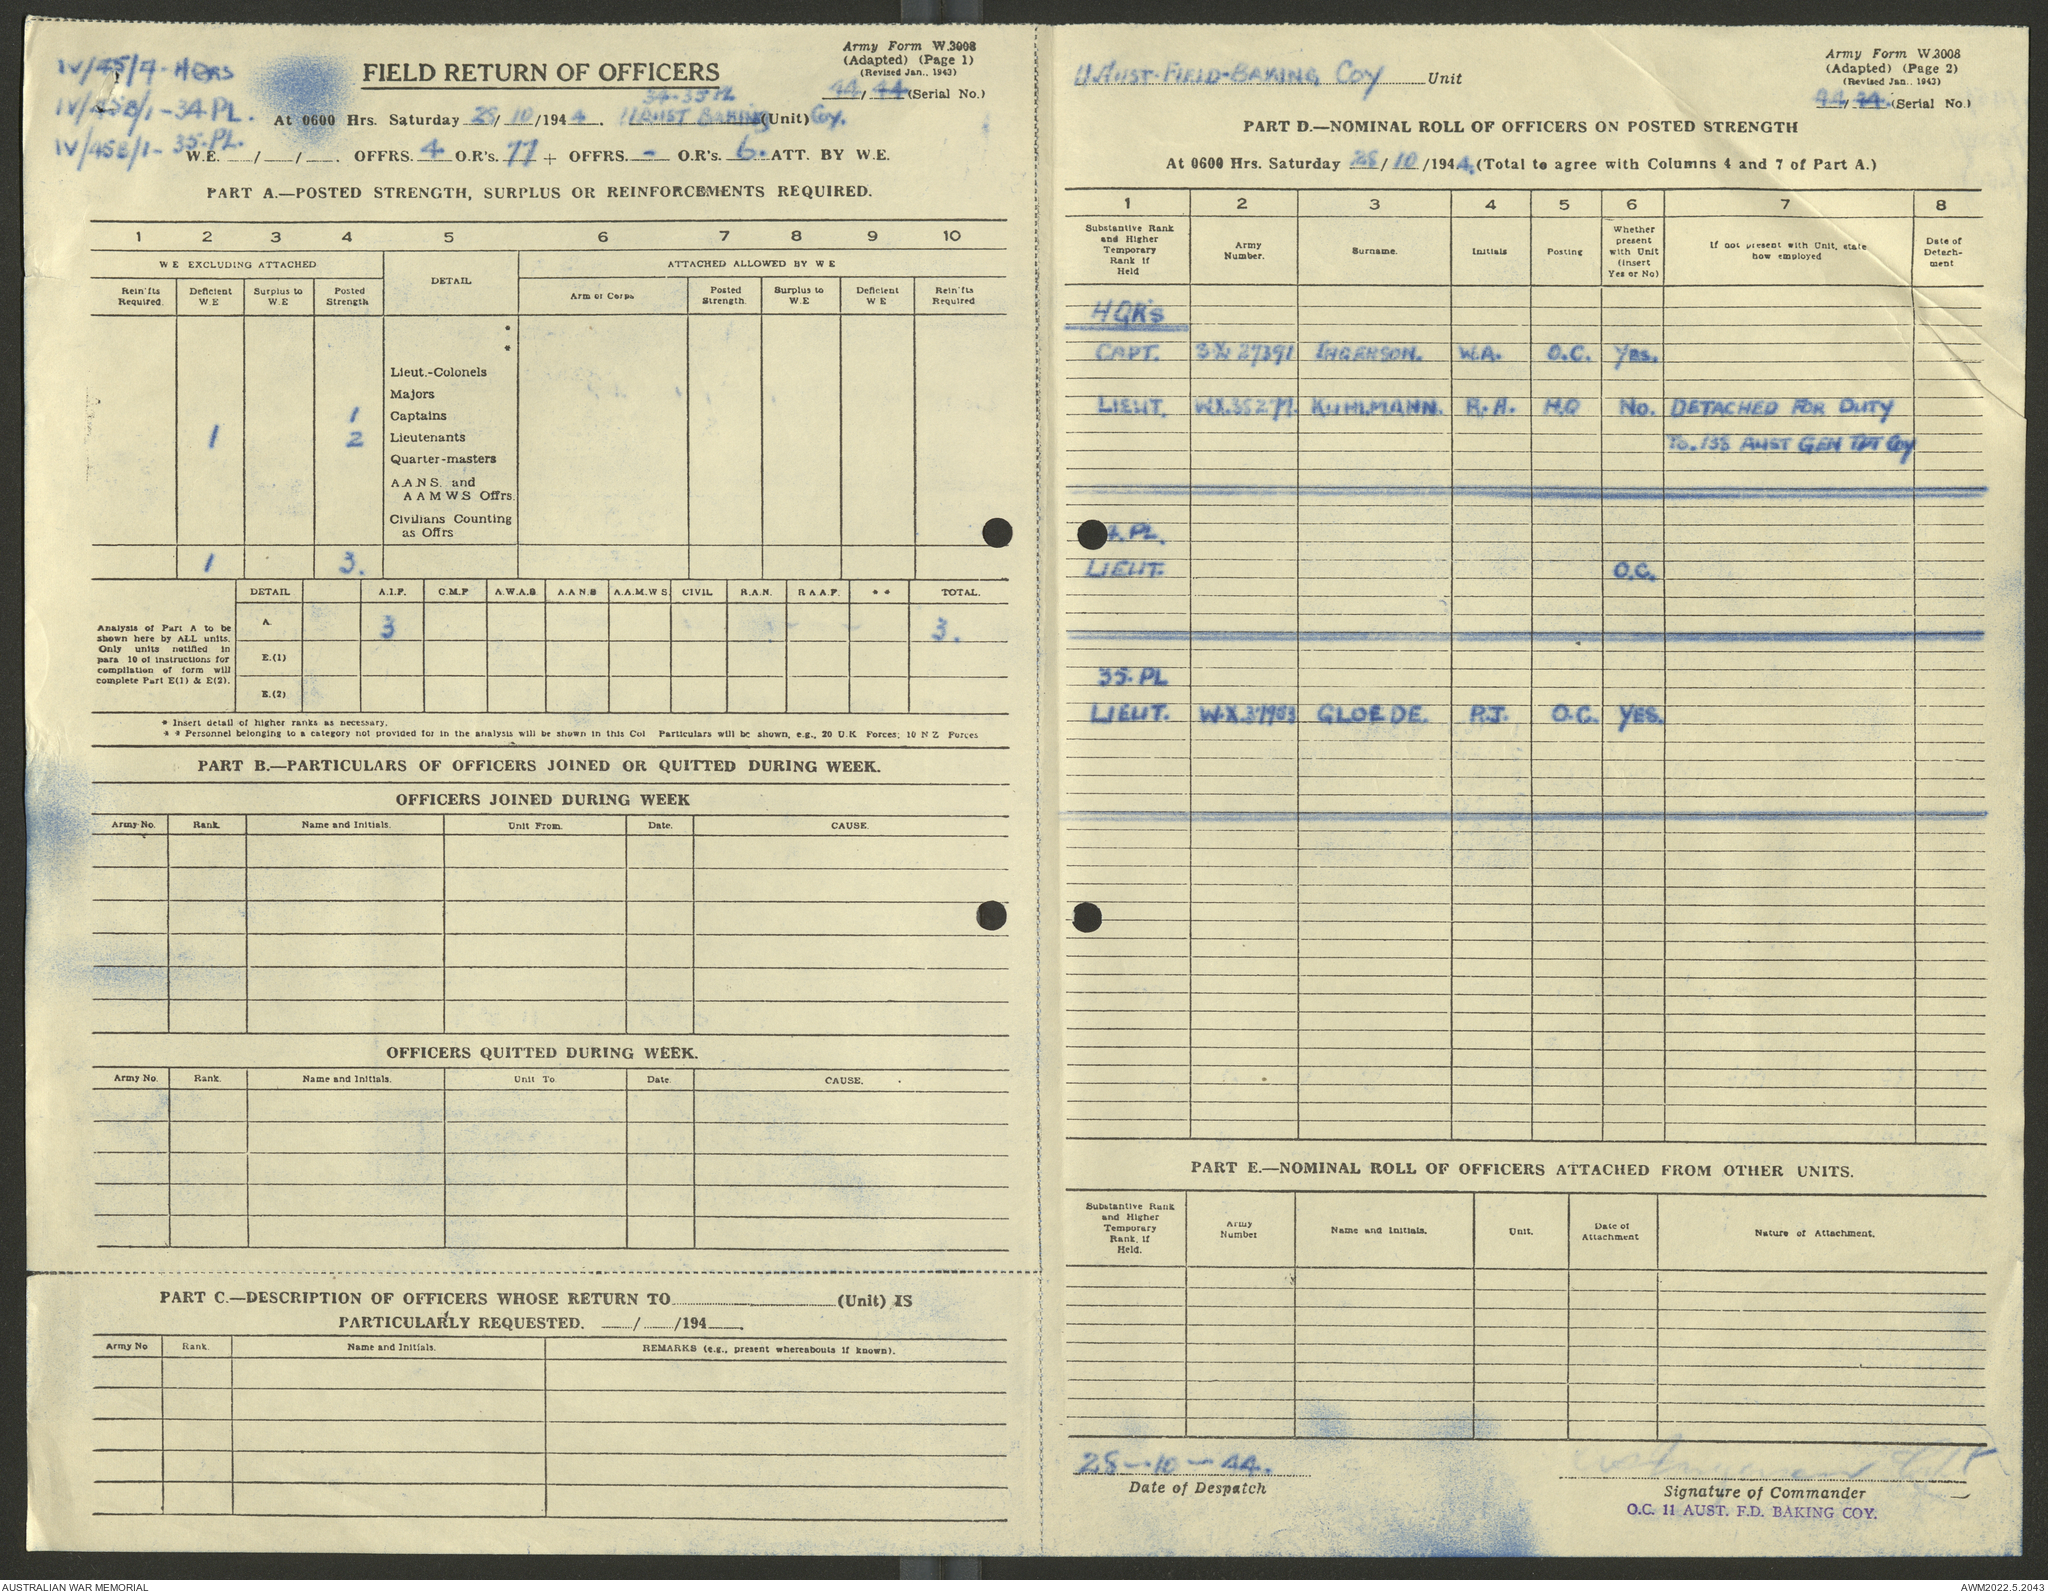 IV/45/7-HQRS
IV/45B/1-34.PL.
IV/45B/1-35.PL.
FIELD RETURN OF OFFICERS
Army Form W.3008
(Adapted) (Page 1)
(Revised Jan., 1943)
44/44 (Serial No.)
34-35 PL
At 0600 Hrs. Saturday 28/10/1944. 11 AUST BAKING (Unit) Coy.
W.E. / / . OFFRS. 4 O.R's. 77 + OFFRS. - O.R's 6. ATT. BY W.E.
PART A.—POSTED STRENGTH, SURPLUS OR REINFORCEMENTS REQUIRED.
1 2 3 4 5 6 7 8 9 10
W E EXCLUDING ATTACHED DETAIL ATTACHED ALLOWED BY W E
Rein'fts Required. Deficient W.E Surplus to W.E Posted Strength Arm or Corps Posted Strength. Surplus to W.E Deficient W E Rein'fts Required
*
*
Lieut.-Colonels
Majors
1 Captains
1 2 Lieutenants
Quarter-masters
A.A N S. and
A A M W S Offrs.
Civilians Counting
as Offrs
1 3.
DETAIL A.I.F. C.M.F A.W.A.S A.A N.S A.A.M.W S. CIVIL R.A.N. R A A.F. * * TOTAL.
Analysis of Part A to be shown here by ALL units. Only units notified in para 10 of instructions for compilation of form will complete Part E(1) & E(2).
A. 3 3.
E.(1)
E.(2)
* Insert detail of higher ranks as necessary.
* * Personnel belonging to a category not provided for in the analysis will be shown in this Col Particulars will be shown, e.g., 20 U.K Forces; 10 N Z Forces
PART B.—PARTICULARS OF OFFICERS JOINED OR QUITTED DURING WEEK.
OFFICERS JOINED DURING WEEK
Army No. Rank. Name and Initials. Unit From. Date. CAUSE.
OFFICERS QUITTED DURING WEEK.
Army No. Rank. Name and Initials. Unit To Date. CAUSE.
PART C.—DESCRIPTION OF OFFICERS WHOSE RETURN TO (Unit) IS
PARTICULARLY REQUESTED. / /194 .
Army No Rank. Name and Initials. REMARKS (e.g., present whereabouts if known).
11 AUST-FIELD-BAKING COY Unit
Army Form W.3008
(Adapted) (Page 2)
(Revised Jan., 1943)
44/44. (Serial No.)
PART D.—NOMINAL ROLL OF OFFICERS ON POSTED STRENGTH
At 0600 Hrs. Saturday 28/10/1944. (Total to agree with Columns 4 and 7 of Part A.)
1 2 3 4 5 6 7 8
Substantive Rank and Higher Temporary Rank if Held Army Number. Surname. Initials Posting Whether present with Unit (insert Yes or No) If not present with Unit, state how employed Date of Detach-ment
HQR'S
CAPT. SX. 27391 INGERSON. W.A. O.C. YES.
LIEUT. WX.35277. KUHLMANN. R.H. H.Q No. DETACHED FOR DUTY
TO. 138 AUST GEN TPT COY
4. PL.
LIEUT. O.C.
35. PL
LIEUT. W.X.37953 GLOEDE. P.J. O.C. YES.
PART E.—NOMINAL ROLL OF OFFICERS ATTACHED FROM OTHER UNITS.
Substantive Rank and Higher Temporary Rank, if Held. Army Number Name and Initials. Unit. Date of Attachment Nature of Attachment.
28-10-44.
Date of Despatch
Signature of Commander
O.C. 11 AUST. F.D. BAKING COY.
AUSTRALIAN WAR MEMORIAL
AWM2022.5.2043